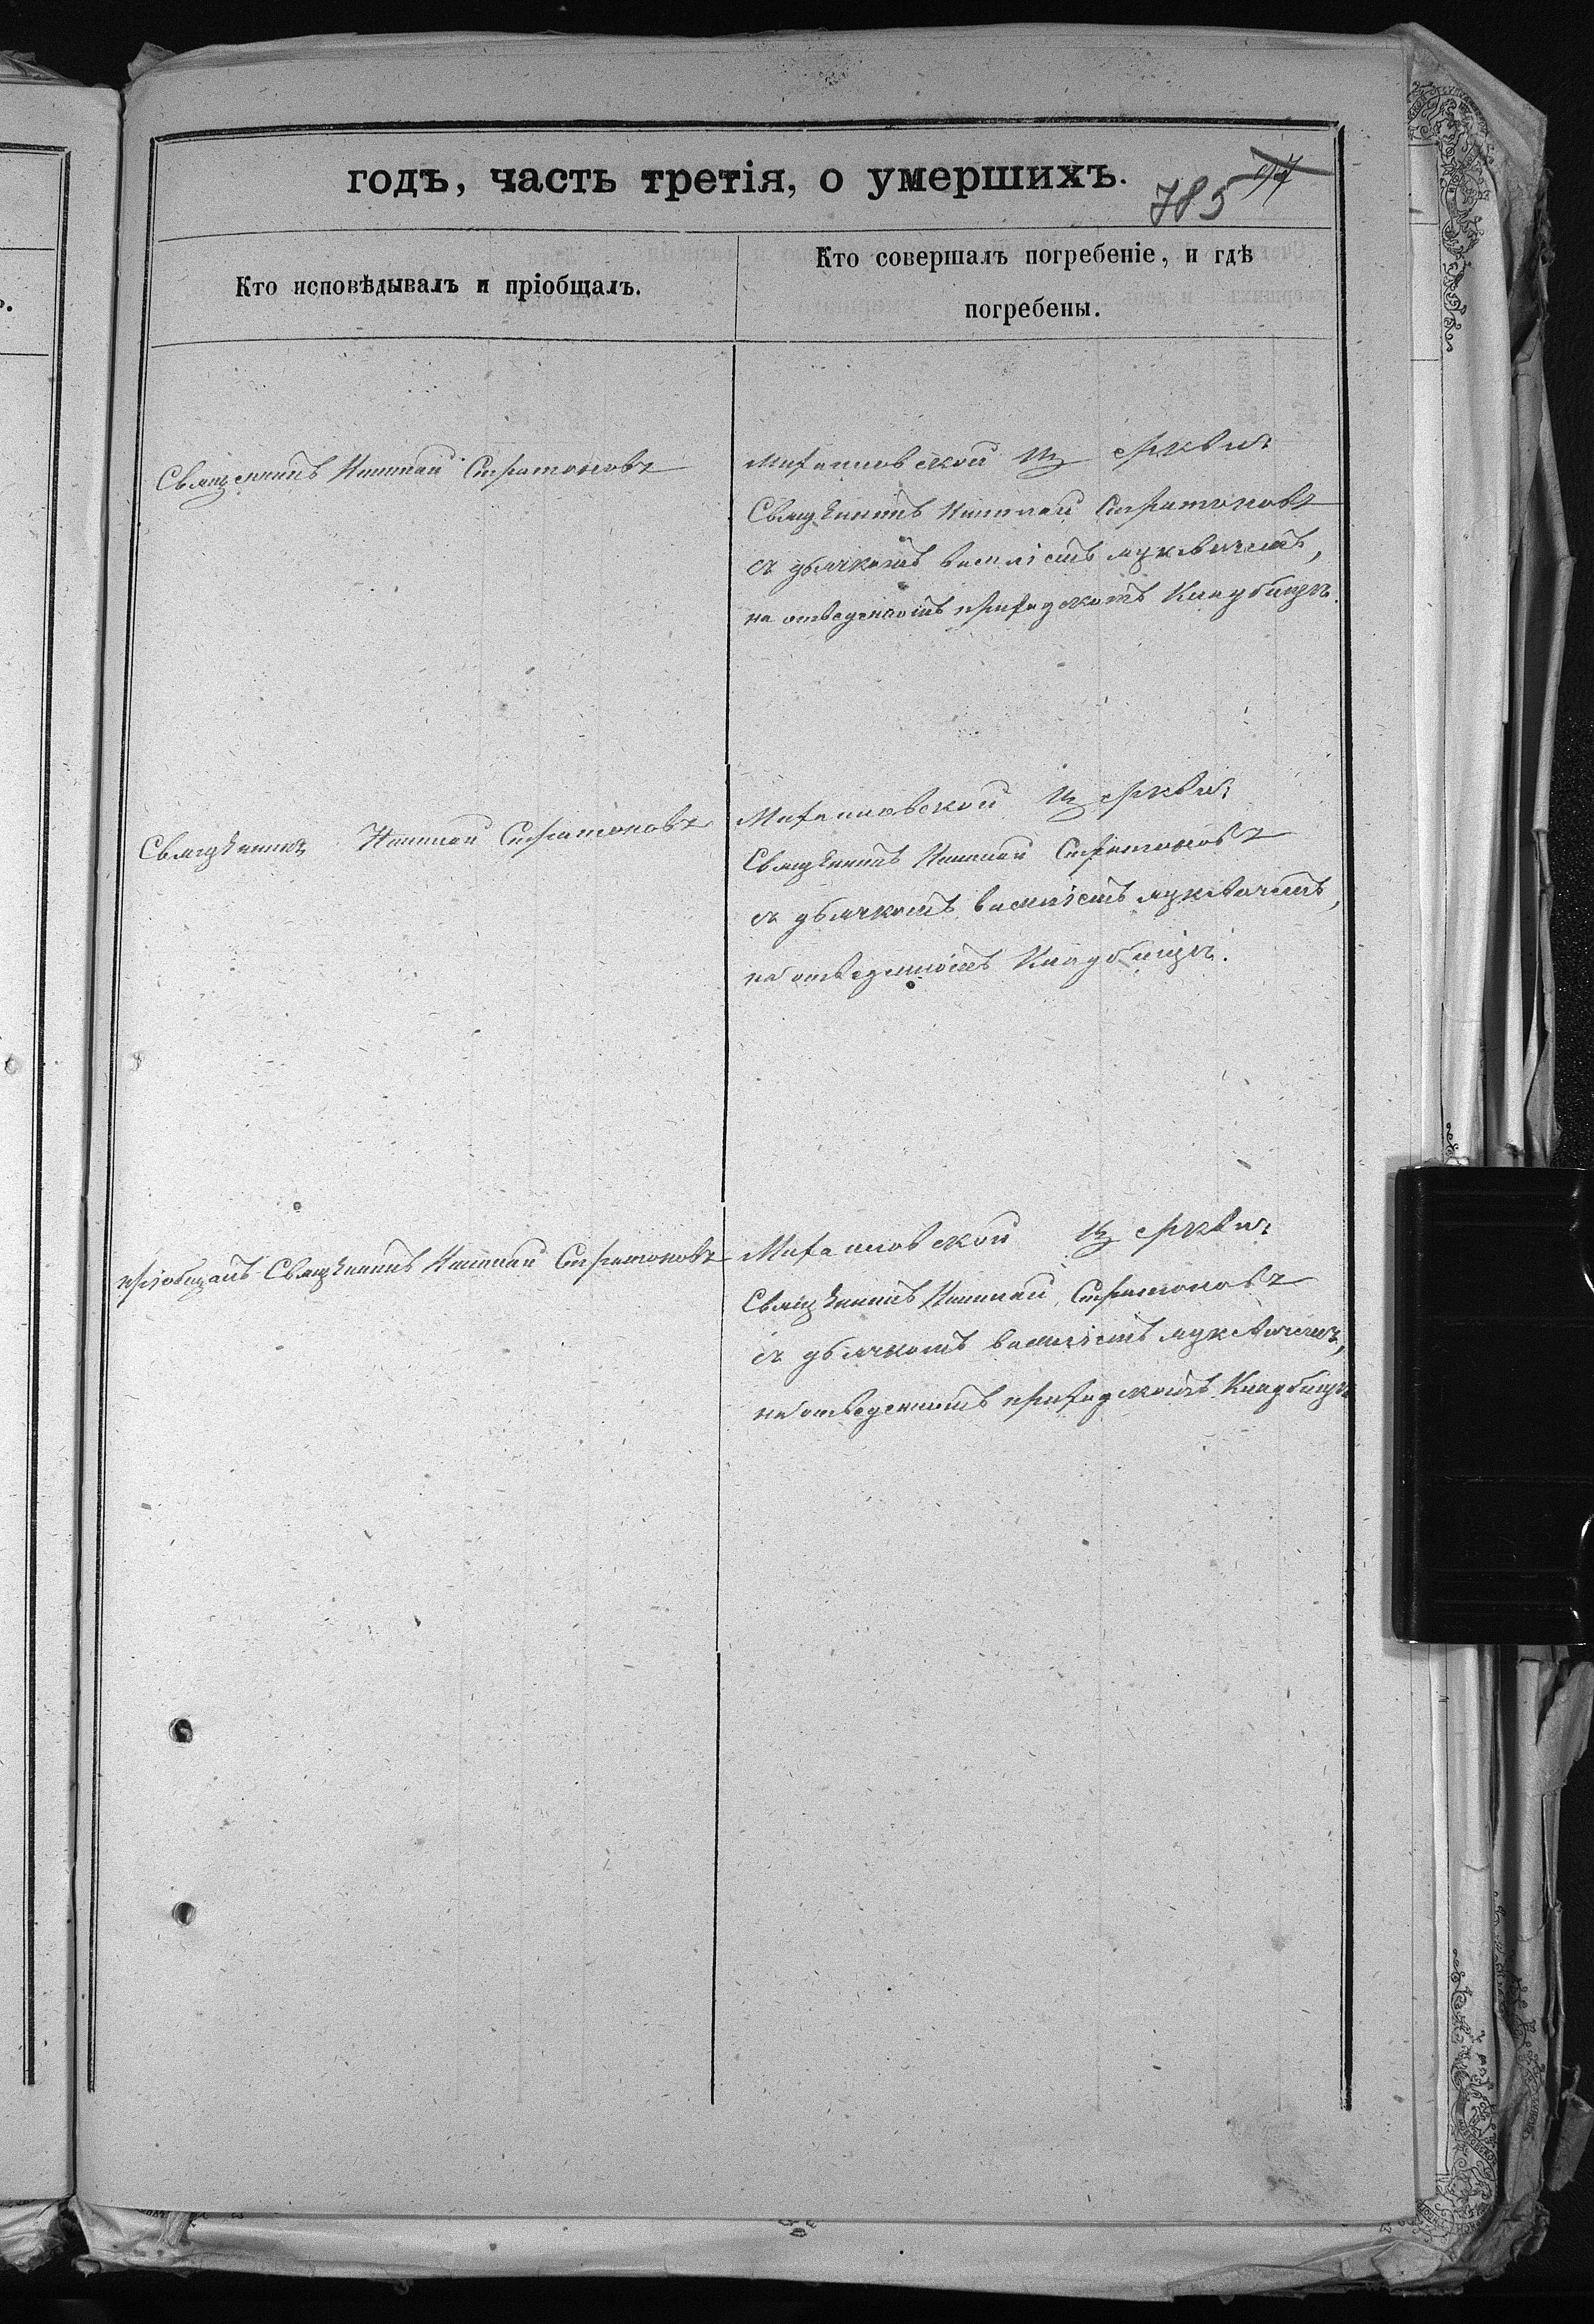 годъ, часть третія, о умершихъ.
785
Кто исповѣдывалъ и пріобщалъ.
Кто совершалъ погребеніе, и гдѣ
погребены.
Священникъ Стратоновъ
Михаиловской Церкви
Священникъ Стратоновъ
съ дьячкомъ василіемъ
на отведенномъ приходскомъ Кладбищѣ.
Священникъ Стратоновъ
Михаиловской Церкви
Священникъ Стратоновъ
съ дьячкомъ василіемъ
на отведенномъ Кладбищѣ.
пріобщалъ Священникъ Стратоновъ
Михаиловской Церкви
Священникъ Стратоновъ
съ дьячкомъ василіемъ
на отведенномъ приходскомъ Кладбищѣ